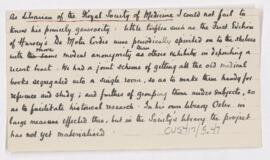 As librarian of the Royal Society of Medicine I could not fail to
know his princely generosity: little trifles such as the First Edition
of Harvey's De Motu Cordis were periodically spirited on to the shelves
with the same modest anonymity as others exhibit in depositing a
recent tract. He had a joint scheme of getting all the old medical
books segregated into a single room, so as to make them handy for
reference and study; and further of grouping them under subjects, so
as to facilitate historical research. In his own library Osler in
large measure effected this, but in the Society's library the project
has not yet materialised.
CUS417/5.47